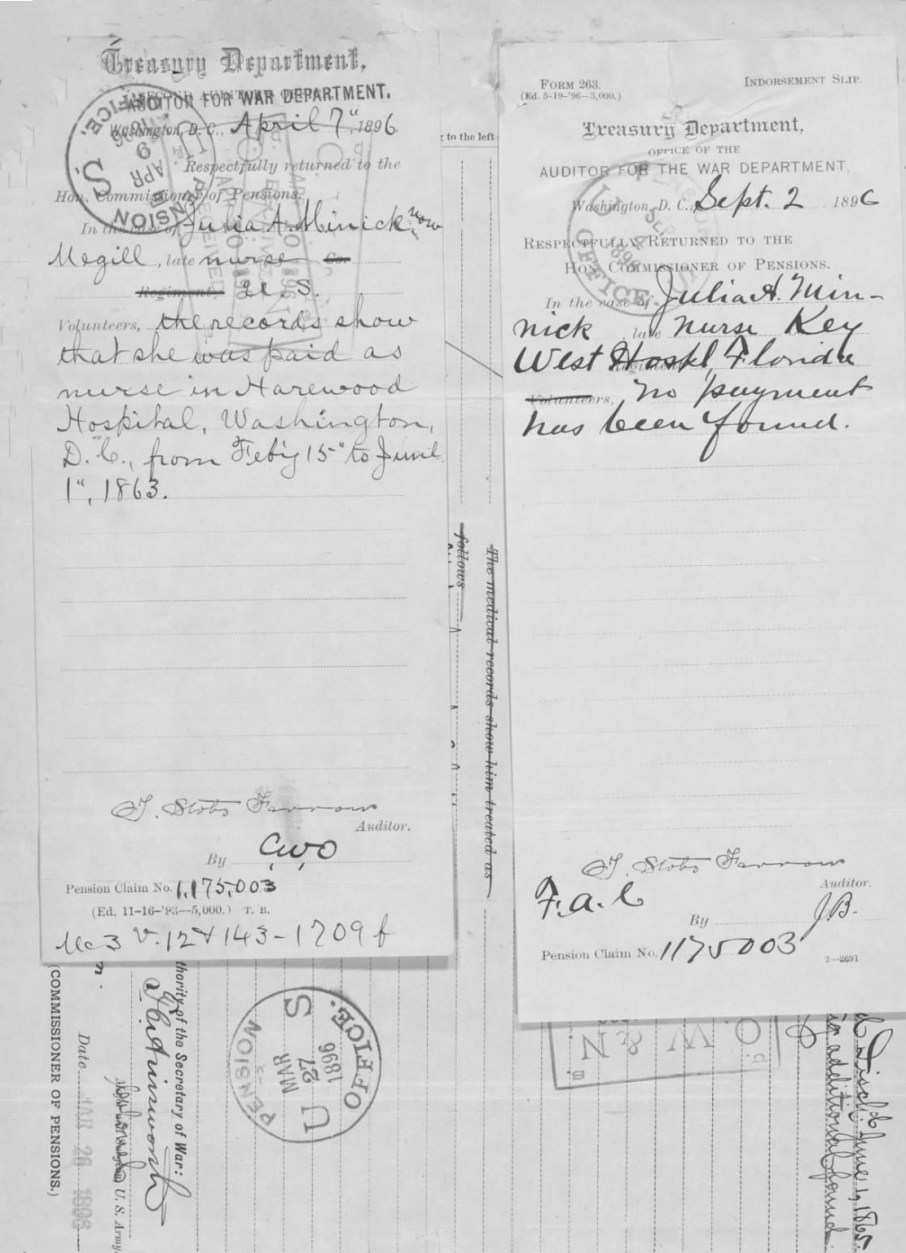 Treasury Department,
AUDITOR FOR WAR DEPARTMENT.
Washington, D. C., April 7", 1896
Respectfully returned to the
Hon. Commissioner of Pensions.
In the case of Julia A. Minick now
Megill, late nurse Co.
Regiment U.S.
Volunteers, the records show
that she was paid as
nurse in Harewood
Hospital, Washington,
D. C., from Feb'y 15" to June
1", 1863.
T. Stobo Farrow
Auditor.
By CWO
Pension Claim No. 1,175,003
(Ed. 11-16-'93—5,000.) T. B.
U.S. PENSION OFFICE.
APR 9
to the left
follows
The medical records show him treated as
FORM 263.
(Ed. 5-19-'96—3,000.)
INDORSEMENT SLIP.
Treasury Department,
OFFICE OF THE
AUDITOR FOR THE WAR DEPARTMENT,
Washington, D. C., Sept. 2 1896
RESPECTFULLY RETURNED TO THE
HON. COMMISSIONER OF PENSIONS.
In the case of Julia A. Min-
nick late Nurse Key
West Hospl, Florida
Volunteers, no payment
has been found.
T. Stobo Farrow
Auditor.
F.a.C
By J.B.
Pension Claim No. 1175003
2—2691
COMMISSIONER OF PENSIONS.)
Date MAR 26 1896
thority of the Secretary of War:
F C Ainsworth
U. S. Army.
U S PENSION OFFICE.
MAR 27 1896
O. W. & N.
Disch'd June 1, 1865
additional found